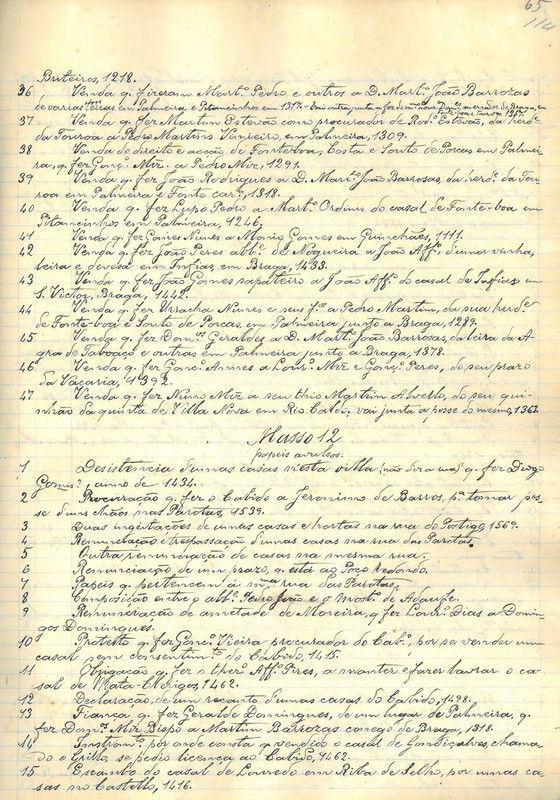 65
114
Briteiros, 1218.
36 Venda q. fizeram Mart.º Pedro e outros a D. Mart.º João Barrozas
de varias leiras em Palmeira e Pitancinhos em 1317.
37 Venda q. fez Martim Estevão como procurador de Rod.º Estevão, da herd.e
da Touroa a Pedro Martins Vinreiro, em Palmeira, 1309.
38 Venda de direito e acção de Fonteboa, Costa e Souto de Porcas em Palmei
ra, q. fez Gonç.º Miz. a Pedro Miz, 1291.
39 Venda q. fez João Rodrigues a D. Mart.º João Barrosas, da herd.e da Tou
roa em Palmeira e Fonte car.ª, 1318.
40 Venda q. fez Lupo Pedro a Mart.º Ordines do casal de Fonte-boa em
Pitancinhos em Palmeira, 1246.
41 Venda q. fez Gomes Nunes a Monio Gomes em Guinchães, 1111.
42 Venda q. fez João Peres abb.e de Nogueira a João Aff.º, d'uma vinha,
leira e devesa em Infias, em Braga, 1433.
43 Venda q. fez João Gomes sapateiro a João Aff.º do casal de Infies em
S. Victor, Braga, 1442.
44 Venda q. fez Ursacha Nunes e seus f.os a Pedro Martim, da sua herd.e
de Fonte-boa e Souto de Porcas, em Palmeira junto a Braga, 1289.
45 Venda q. fez Dom.os Geraldes a D. Mart.º João Barrosas, da leira da A-
gra de Taboaço e outras em Palmeira junto a Braga, 1378.
46 Venda q. fez Gonc.º Annes a Lour.º Miz e Gonç.º Peres, do seu prazo
da Vaçaria, 1392.
47 Venda q. fez Nuno Miz a seu thio Martim Alvello, do seu qui-
nhão da quinta de Villa Nova em Rio Caldo, vai junta a posse do mesmo, 1362.
Masso 12
papeis avulsos.
1 Desistencia d'umas casas n'esta villa (não diz a rua) q. fez Diogo
Gomis?, anno de 1434.
2 Procuração q. fez o Cabido a Jeronimo de Barros, p.ª tomar pos-
se d'uns chãos nas Parotas, 1539.
3 Duas inquitações de umas casas e hortas na rua do Postigo, 1569.
4 Renunciação e trespassação d'umas casas na rua das Parotas.
5 Outra renunciação de casas na mesma rua.
6 Renunciação de um prazo, q. está ao Poço redondo.
7 Papeis q. pertencem á m.ma rua das Parotas.
8 Composição entre o abb.e Pedro João e o Most.º de Adaufe.
9 Renunciação de ametade de Moreira, q. fez Lour.º Dias a Domin-
gos Domingues.
10 Protesto q. fez Gonc.º Vieira procurador do Cab.º, por se vender um
casal sem consentim.to do Cabido, 1415.
11 Obrigação q. fez o ther.º Aff.º Pires, a manter e fazer lavrar o ca-
sal de Mata-Clerigos, 1462.
12 Declaração, de um recanto d'umas casas do Cabido, 1498.
13 Fiança q. fez Geralde Domingues, de um lugar de Palmeira, q.
fez Dom.os Miz Bispo a Martim Barrozas conego de Braga, 1318.
14 Instrom.º, por onde consta q. vendido o casal de Gondiçalves, chama-
do o Grillo, se pediu licença ao Cabido, 1462.
15 Escambo do casal de Louredo em Riba de Selho, por umas ca-
sas no Castello, 1416.